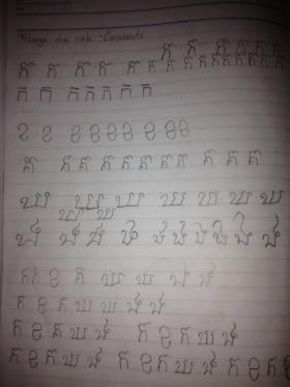 Consonants
ក ក ក ក ក
ក ក ក ក ក ក ក ក ក ក ក ក
ក ក ក ក ក ក ក
ខ ខ ខ ខ ខ ខ ខ ខ ខ
គ គ គ គ គ គ គ គ គ គ
ឃ ឃ ឃ ឃ ឃ ឃ ឃ
ឃ ឃ
ង ង ង ង ង ង ង ង ង ង
ក ខ គ ឃ ឃ ង ង
ក ខ គ ឃ ឃ ង ង
ក ខ គ ឃ ង ក ខ គ ឃ ង
ក ខ គ ឃ ង ក ខ គ ឃ ង ក ខ គ